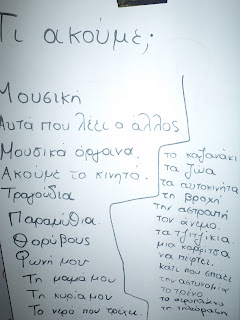 Τι ακούμε;
Μουσική
Αυτά που λέει ο άλλος
Μουσικά όργανα.
Ακούμε το κινητό.
Τραγούδια
Παραμύθια.
Θορύβους
Φωνή μου
Τη μαμά μου
Τη κυρία μου
Το νερό που τρέχει.
το καζανάκι
τα ζώα
τα αυτοκίνητα
τη βροχή
την αστραπή
τον άνεμο.
τα τζιτζίκια.
μια καρφίτσα
να πέφτει.
κάτι που σπάει
την αστυνομία
το τρένο
το αεροπλάνο
τη τηλεόραση